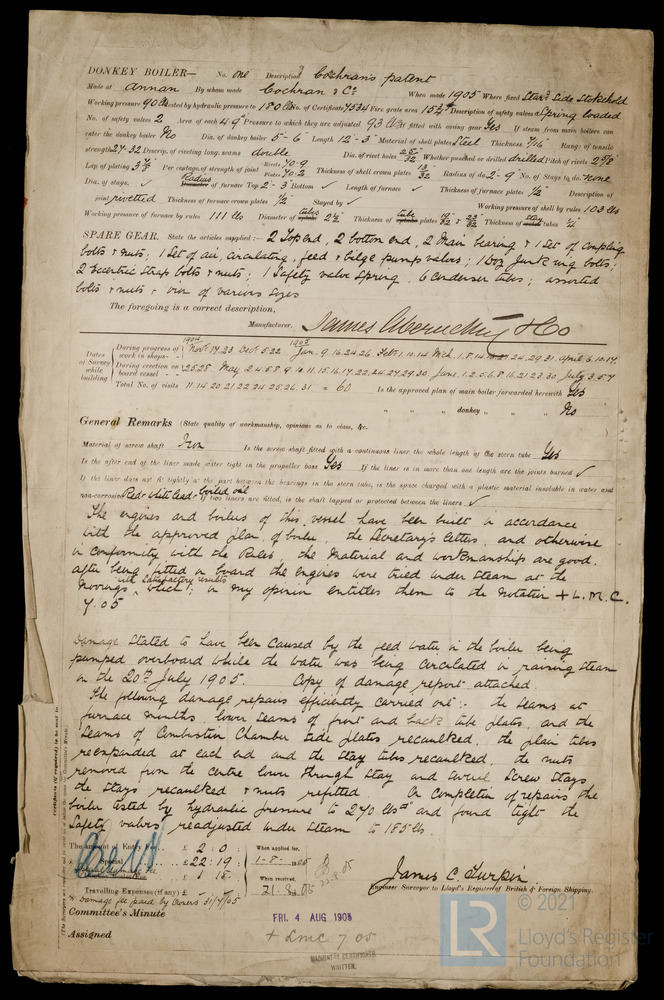 DONKEY BOILER— No. One Description Cochran's patent
Made at Annan By whom made Cochran & Co When made 1905 Where fixed Star'd Side Stokehold
Working pressure 90 lbs tested by hydraulic pressure to 180 lbs No. of Certificate 7534 Fire grate area Description of safety valves Spring loaded
No. of safety valves 2 Area of each 4.9" Pressure to which they are adjusted 93 lbs If fitted with easing gear Yes If steam from main boilers can
enter the donkey boiler No Dia. of donkey boiler 5-6 Length 12-3 Material of shell plates Steel Thickness 7/16 Range of tensile
strength 27-32 Descrip. of riveting long. seams double Dia. of rivet holes 25/32 Whether punched or drilled drilled Pitch of rivets
Lap of plating Per centage of strength of joint Rivets 70.9 Plates 70.2 Thickness of shell crown plates 13/32 Radius of do 2-9 No. of Stays to do. none
Dia. of stays. ✓ Radius Diameter of furnace Top 2-3 Bottom ✓ Length of furnace ✓ Thickness of furnace plates 1/2 Description of
joint rivetted Thickness of furnace crown plates 1/2 Stayed by ✓ Working pressure of shell by rules 103 lbs
Working pressure of furnace by rules 111 lbs Diameter of tubes Thickness of tube plates 23/32 Thickness of stay tubes 1/4
SPARE GEAR. State the articles supplied:— 2 Top end, 2 bottom end, 2 Main bearing & 1 Set of coupling
bolts & nuts; 1 Set of air, circulating, feed & bilge pump valves; 1 doz junk ring bolts;
2 Eccentric Strap bolts & nuts; 1 Safety valve spring, 6 condenser tubes; assorted
bolts & nuts & iron of various sizes
The foregoing is a correct description,
Manufacturer. James & Co
Dates of Survey while building
During progress of work in shops— 1904 Nov. 14.23 Dec. 5.22 1905 Jan. 9.16.24.26 Feb. 1.10.14 Mch. 1.8.14 24.29.31 April 6.10.14
During erection on board vessel— 25.28 May 2.4.5.8.9.10.11.15.16.17.22.24.27.29.30 June 1.2.5.6.8.16.21.23.30 July 3.5.7
Total No. of visits 11.14.20.21.22.24.25.26.31 = 60 Is the approved plan of main boiler forwarded herewith Yes
" " " donkey " " " No
General Remarks (State quality of workmanship, opinions as to class, &c.
Material of screw shaft Iron Is the screw shaft fitted with a continuous liner the whole length of the stern tube Yes
Is the after end of the liner made water tight in the propeller boss Yes If the liner is in more than one length are the joints burned ✓
If the liner does not fit tightly at the part between the bearings in the stern tube, is the space charged with a plastic material insoluble in water and
non-corrosive Red & white lead & boiled oil If two liners are fitted, is the shaft lapped or protected between the liners ✓
The engines and boilers of this vessel have been built in accordance
with the approved plan, of boiler, the Secretary's letters, and otherwise
in conformity with the Rules, the Material and workmanship are good.
After being fitted on board the engines were tried under steam at the
moorings with Satisfactory results which, in my opinion entitles them to the notation + L.M.C.
7.05
Damage stated to have been caused by the feed water in the boiler being
pumped overboard while the water was being circulated in raising steam
on the 20th July 1905. Copy of damage report attached.
The following damage repairs efficiently carried out:- the seams at
furnace mouths, lower seams of front and back tube plates, and the
seams of Combustion Chamber side plates recaulked, the plain tubes
reexpanded at each end and the stay tubes recaulked, the nuts
removed from the centre lower through stay and several screw stays
the stays recaulked & nuts refitted. On completion of repairs the
boiler tested by hydraulic pressure to 270 lbs and found tight the
safety valves readjusted under steam to 185 lbs.
The amount of Entry Fee.. £ 2 : 0 : When applied for,
Special £22 : 19 : 1-8-1905
£ 1 : 18 : When received,
Travelling Expenses (if any) £ 21.8.05 22.8.05
Damage fee paid by Owners 31/7/05
James C. Engineer Surveyor to Lloyd's Register of British & Foreign Shipping.
Committee's Minute FRI. 4 AUG 1905
Assigned + LMC 7.05
MACHINERY CERTIFICATE
WRITTEN.
© 2021
LR
Lloyd's Register
Foundation